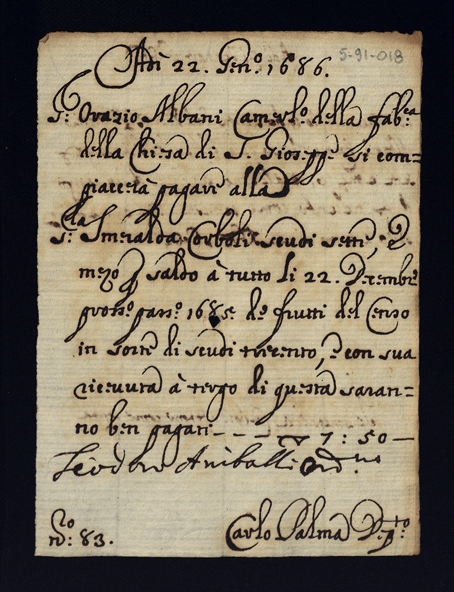 Adì 22. Gen.º 1686.
5-91-018
S.r Orazio Albani Camerl.º della fab.ca
della Chiesa di S. Gioseppe si com=
piacerà pagare alla
S.ra Smeralda Corboli scudi sette, e
mezo p saldo à tutto li 22. Decembre
pross.º pass.º 1685 de frutti del Censo
in sorte di scudi trecento, e con sua
ricevuta à tergo di questa saran=
no ben pagati - - - 7 : 50 —
Aniballi
n.º 83.
Carlo Palma